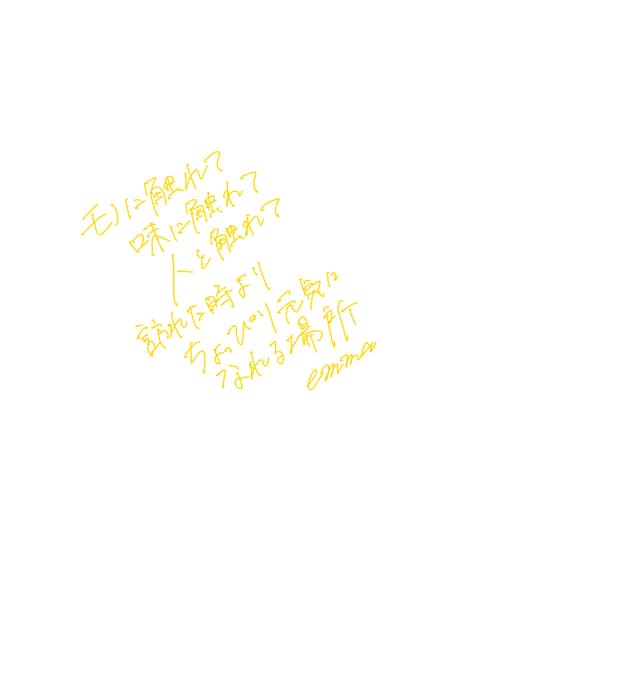 モノに触れて
味に触れて
人と触れて
訪れた時より
ちょっぴり元気に
なれる場所
emma